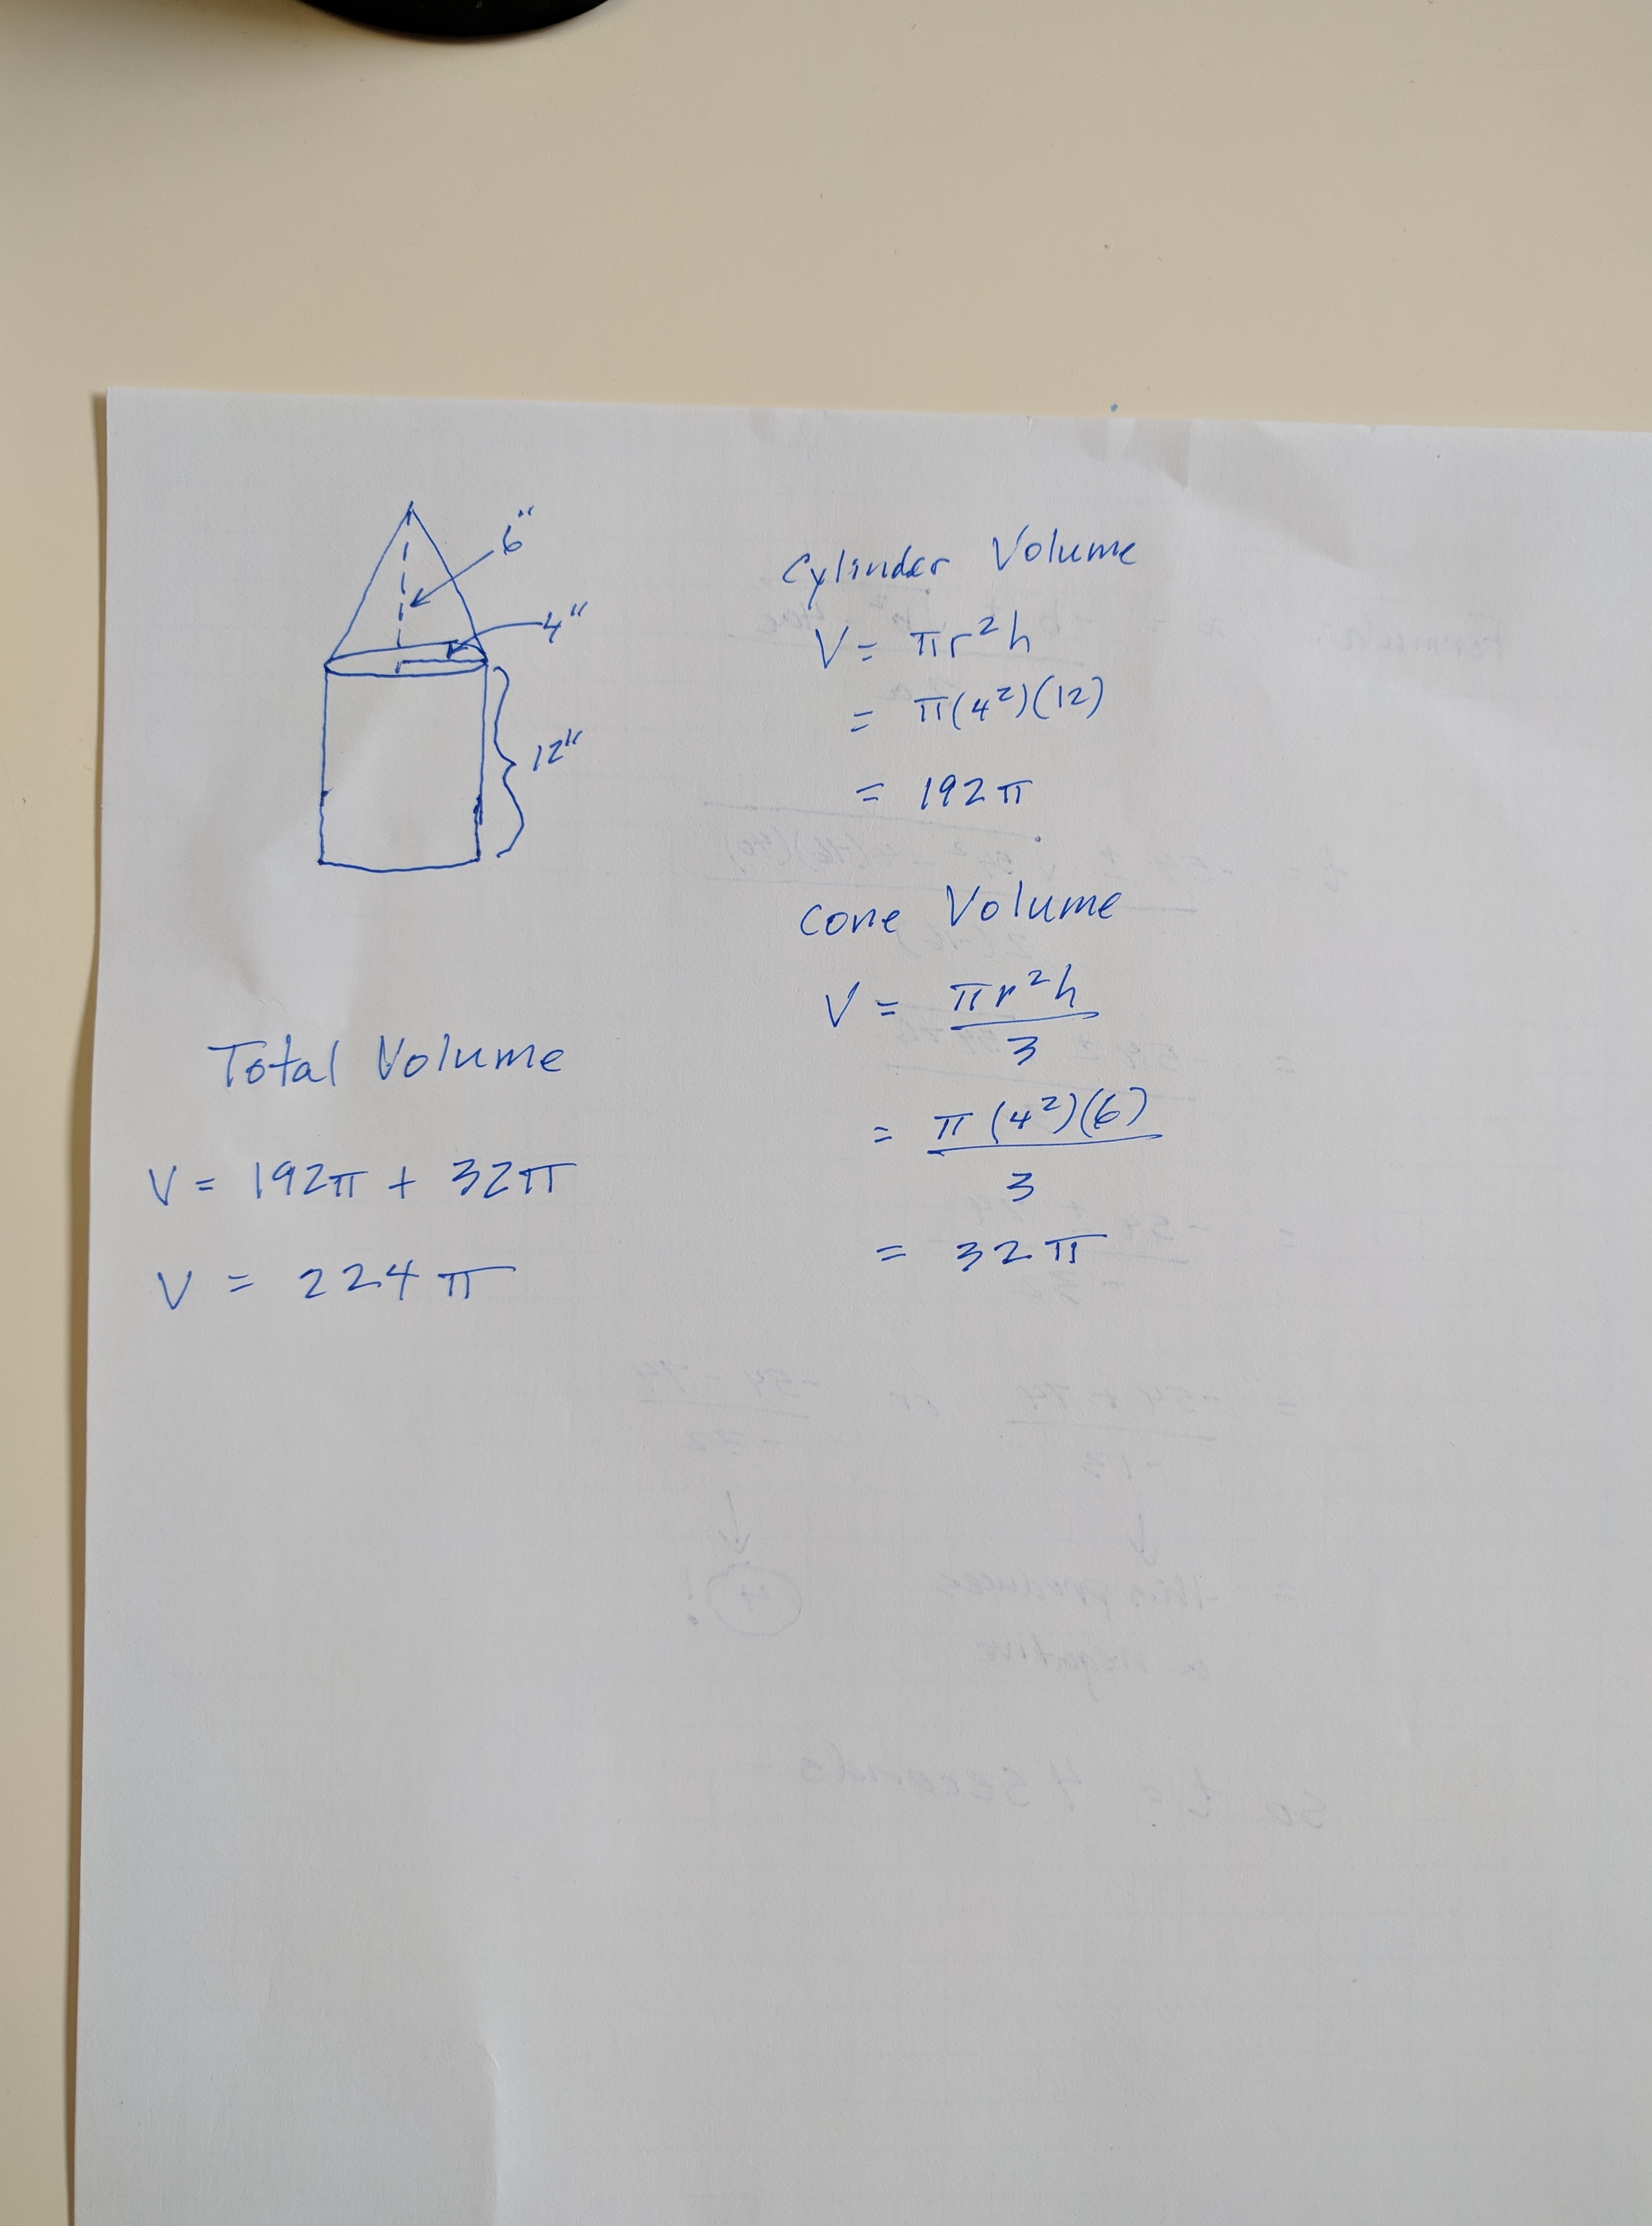 6"
4"
12"
Cylinder Volume
V = πr²h
= π(4²)(12)
= 192π
Cone Volume
V = πr²h
3
= π(4²)(6)
3
= 32π
Total Volume
V = 192π + 32π
V = 224π